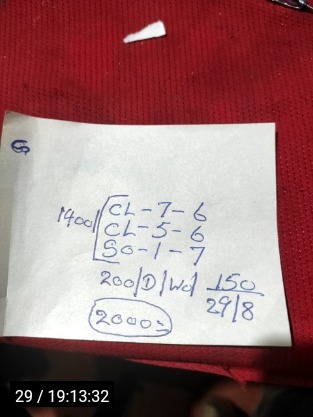 CL-7-6
1400/ CL-5-6
SO-1-7
200/D/Wd/ 150
29/8
2000=
29 / 19:13:32